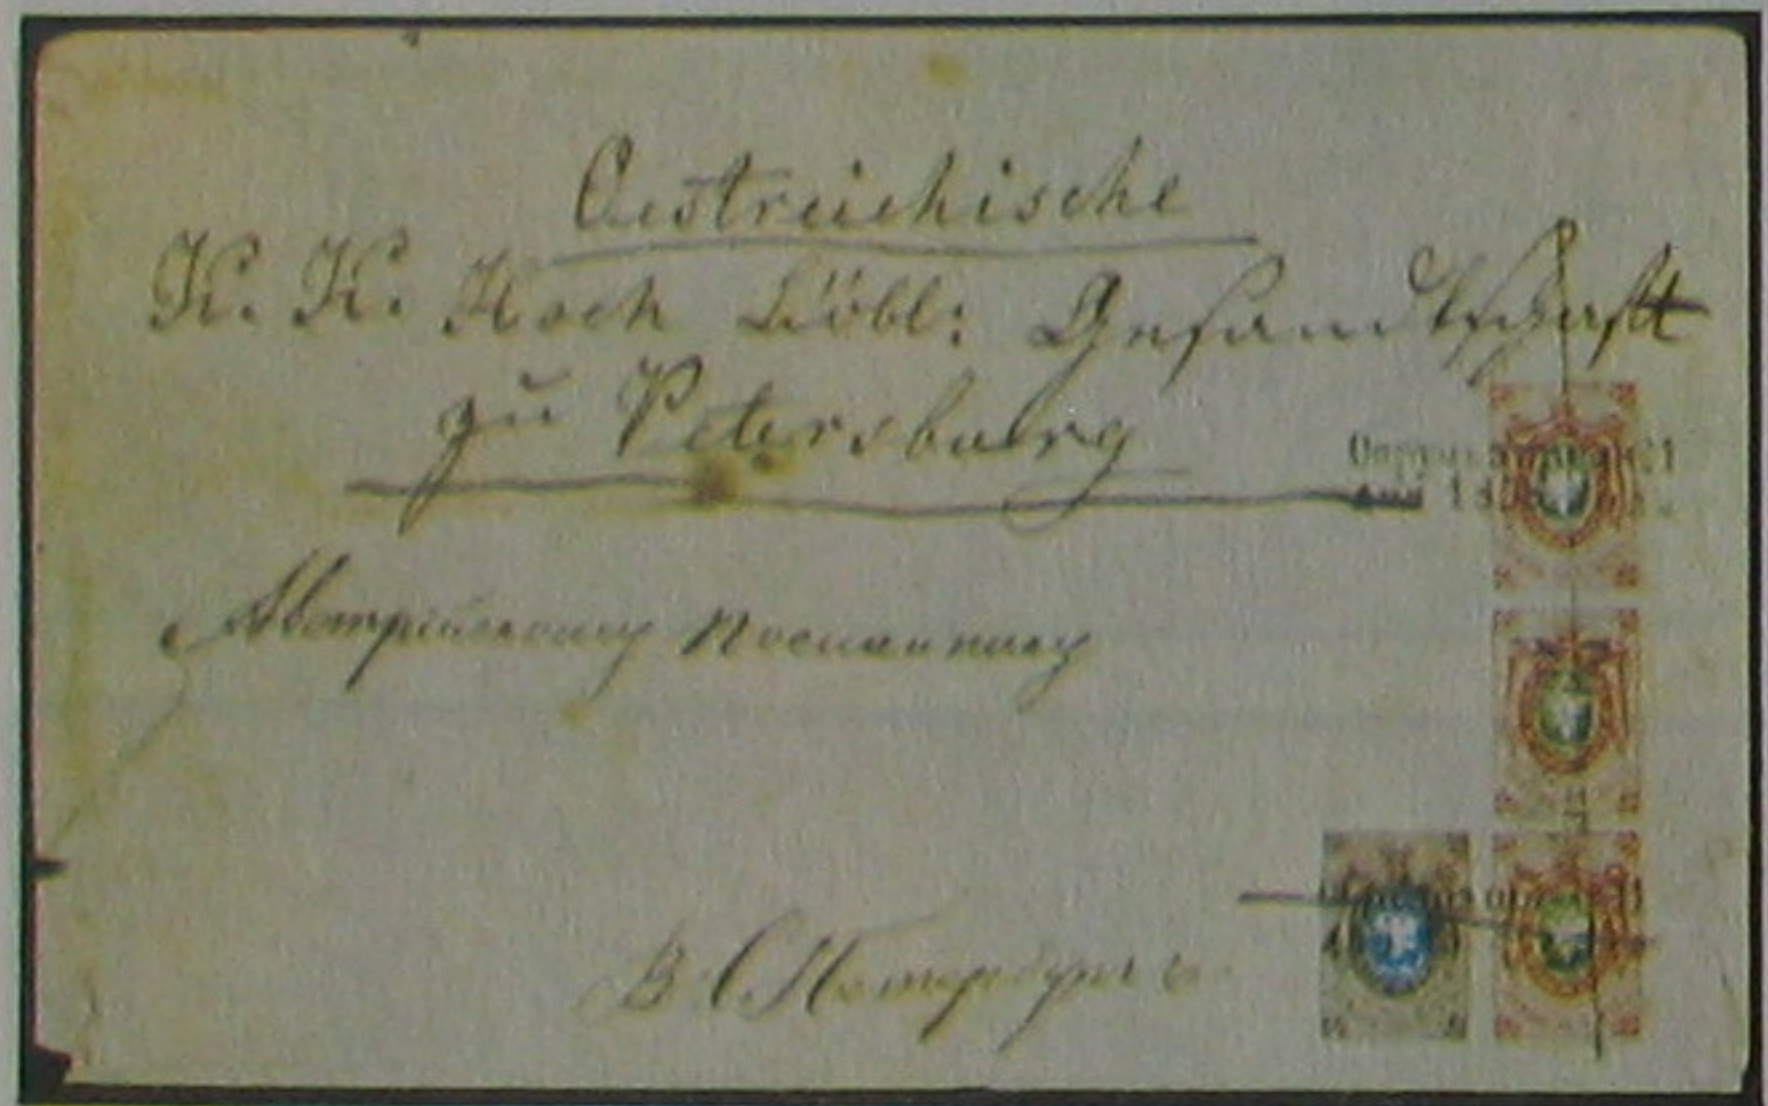 Oestreichische
K. K. Hoch Löbl: Gesandtschaft
zu Petersburg
Австрийскому Посланнику
В С Петербурге